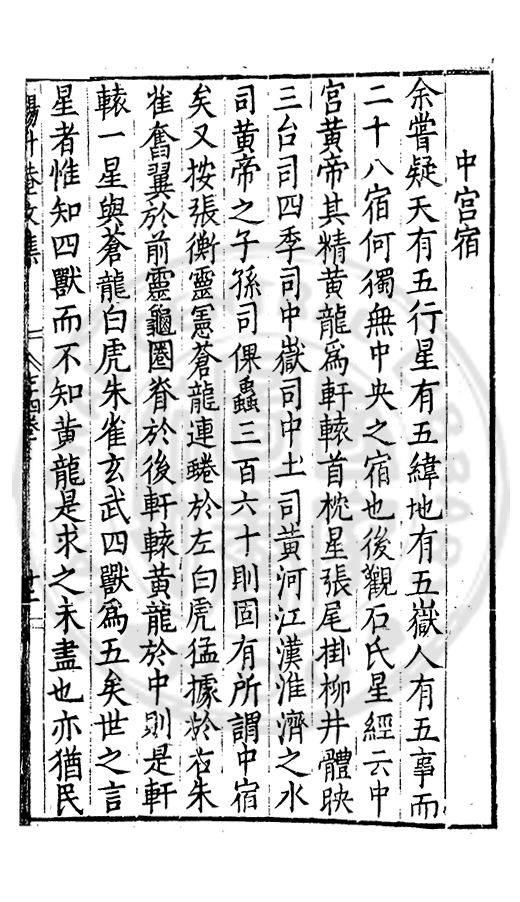 中宮宿
余嘗疑天有五行星有五緯地有五嶽人有五事而
二十八宿何獨無中央之宿也後觀石氏星經云中
宮黃帝其精黃龍爲軒轅首枕星張尾掛柳井體映
三台司四季司中嶽司中土司黃河江漢淮濟之水
司黃帝之子孫司倮蟲三百六十則固有所謂中宿
矣又按張衡靈憲蒼龍連蜷於左白虎猛據於右朱
雀奮翼於前靈龜圈脊於後軒轅黃龍於中則是軒
轅一星與蒼龍白虎朱雀玄武四獸爲五矣世之言
星者惟知四獸而不知黃龍是求之未盡也亦猶民